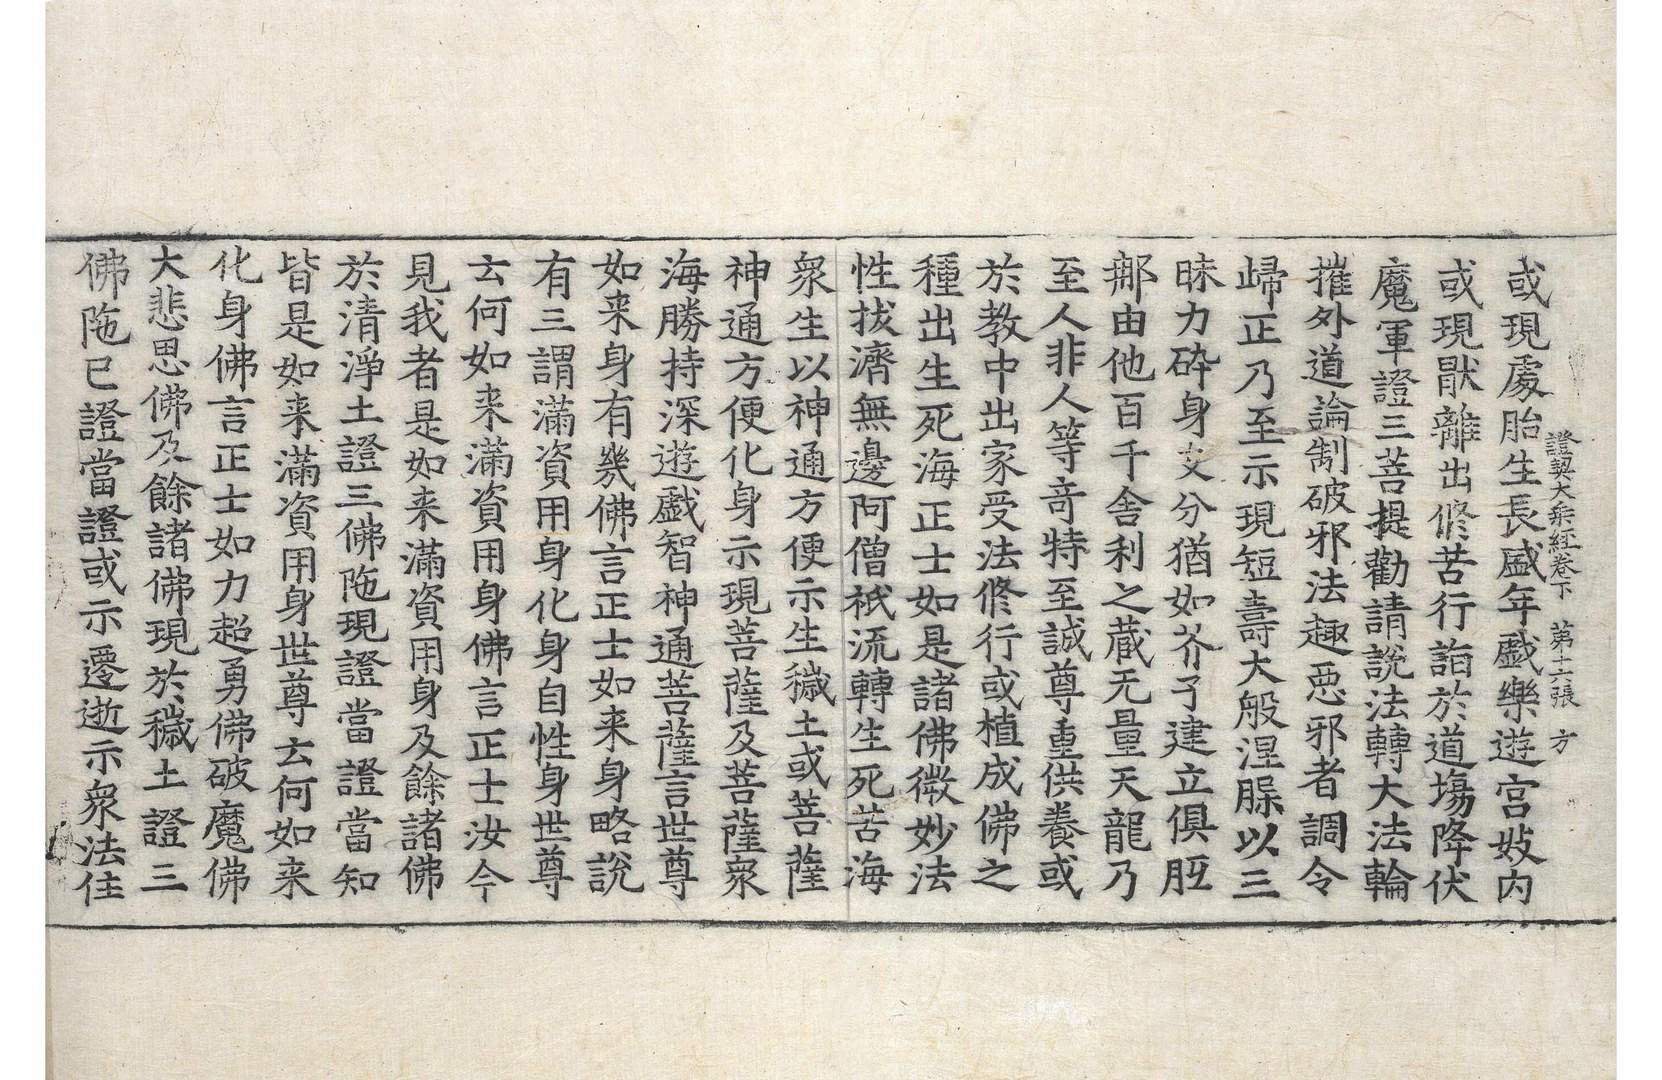 證契大乘經卷下 第十六張 方
或現處胎生長盛年戲樂遊宮妓內
或現猒離出修苦行詣於道場降伏
魔軍證三菩提勸請說法轉大法輪
摧外道論制破邪法趣惡邪者調令
歸正乃至示現短壽大般涅槃以三
昧力碎身支分猶如芥子建立俱胝
那由他百千舍利之藏无量天龍乃
至人非人等竒特至誠尊重供養或
於教中出家受法修行或植成佛之
種出生死海正士如是諸佛微妙法
性拔濟無邊阿僧祇流轉生死苦海
衆生以神通方便示生穢土或菩薩
神通方便化身示現菩薩及菩薩衆
海勝持深遊戲智神通菩薩言世尊
如来身有幾佛言正士如来身略說
有三謂滿資用身化身自性身世尊
云何如来滿資用身佛言正士汝今
見我者是如来滿資用身及餘諸佛
於清淨土證三佛陁現證當證當知
皆是如来滿資用身世尊云何如来
化身佛言正士如力超勇佛破魔佛
大悲思佛及餘諸佛現於穢土證三
佛陁已證當證或示遷逝示衆法住